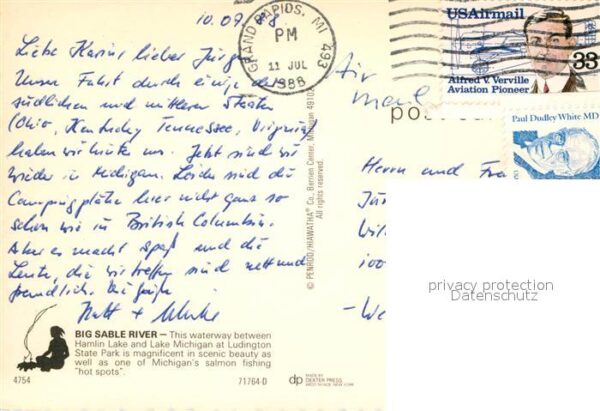 10.07.88
Liebe Karin, lieber Jürgen
Unsere Fahrt durch einige der
südlichen und mittleren Staaten
(Ohio, Kentucky Tennessee, Virginia)
haben wir hinter uns. Jetzt sind wir
wieder in Michigan. Leider sind die
Campingplätze hier nicht ganz so
schön wie in British Columbia.
Aber es macht Spaß und die
Leute, die wir treffen sind nett und
freundlich. Viele Grüße
BIG SABLE RIVER – This waterway between
Hamlin Lake and Lake Michigan at Ludington
State Park is magnificent in scenic beauty as
well as one of Michigan's salmon fishing
"hot spots".
4754
71764-D
dp
MADE BY
DEXTER PRESS
WEST NYACK, NEW YORK
© PENROD/HIAWATHA® Co., Berrien Center, Michigan 49102
All rights reserved.
GRAND RAPIDS, MI 493
PM
11 JUL
1988
Air
mail
USAirmail
33
Alfred V. Verville
Aviation Pioneer
Paul Dudley White MD
pos
Herrn und Fra
Jür
Wil
100
- We
privacy protection
Datenschutz